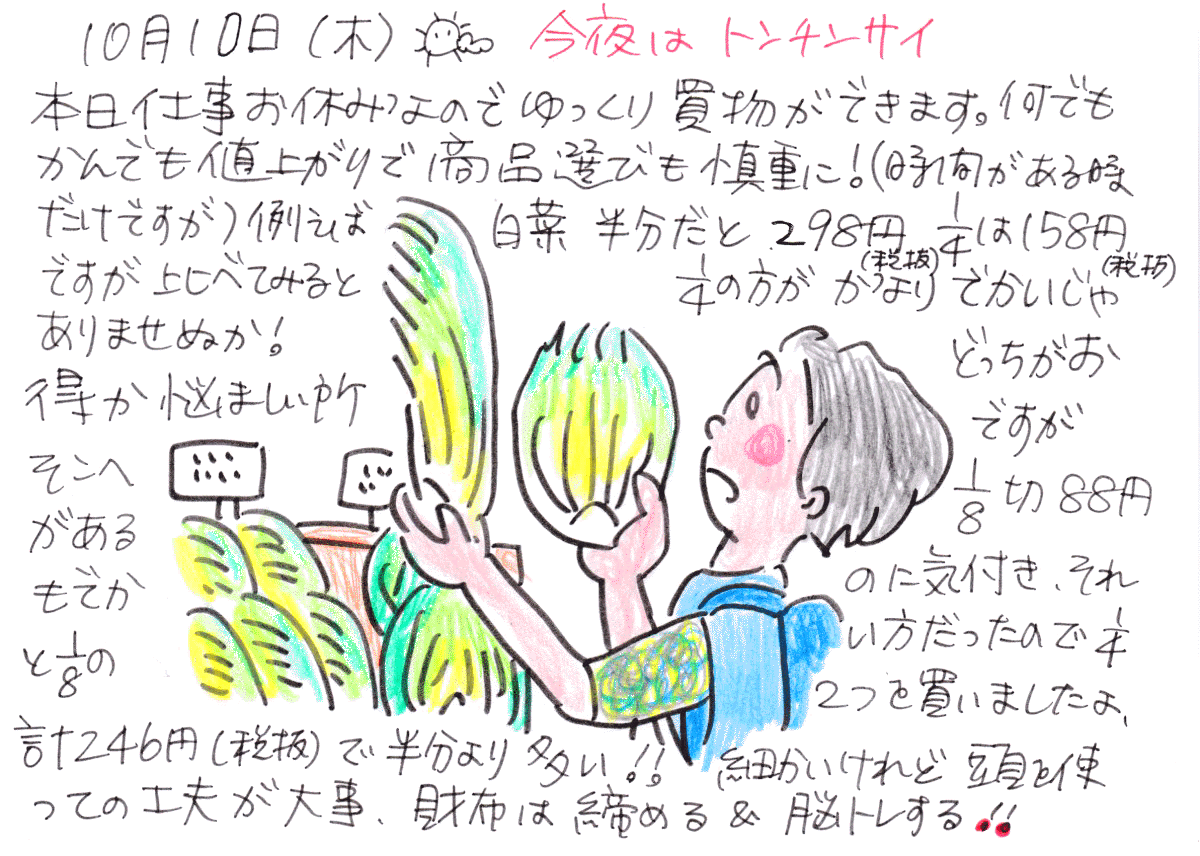 10月10日(木) 今夜は トンチンサイ
本日仕事お休みなのでゆっくり買物ができます。何でも
かんでも値上がりで商品選びも慎重に!(時間がある時
だけですが)例えば 白菜 半分だと 298円(税抜) 1/4は158円(税抜)
ですが比べてみると 1/4の方が かなり でかいじゃ
ありませぬか! どっちがお
得か悩ましい所 ですが
そこへ 1/8切88円
がある のに気付き、それ
もでか い方だったので1/4
と1/8の 2つを買いましたよ、
計246円(税抜)で半分より多い!! 細かいけれど 頭を使
っての工夫が大事、財布は締める&脳トレする!!